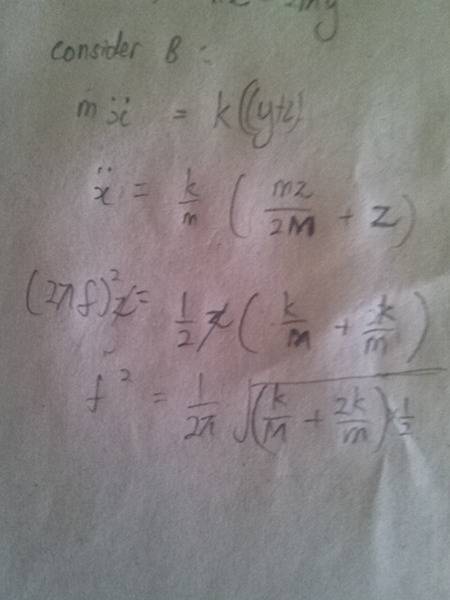 2my
consider B :
mẍ = k((y+z)
ẍ = k/m ( mz/2M + z )
(2πf)²x = 1/2 x ( k/M + k/m )
f² = 1/2π √(k/M + 2k/m) × 1/2